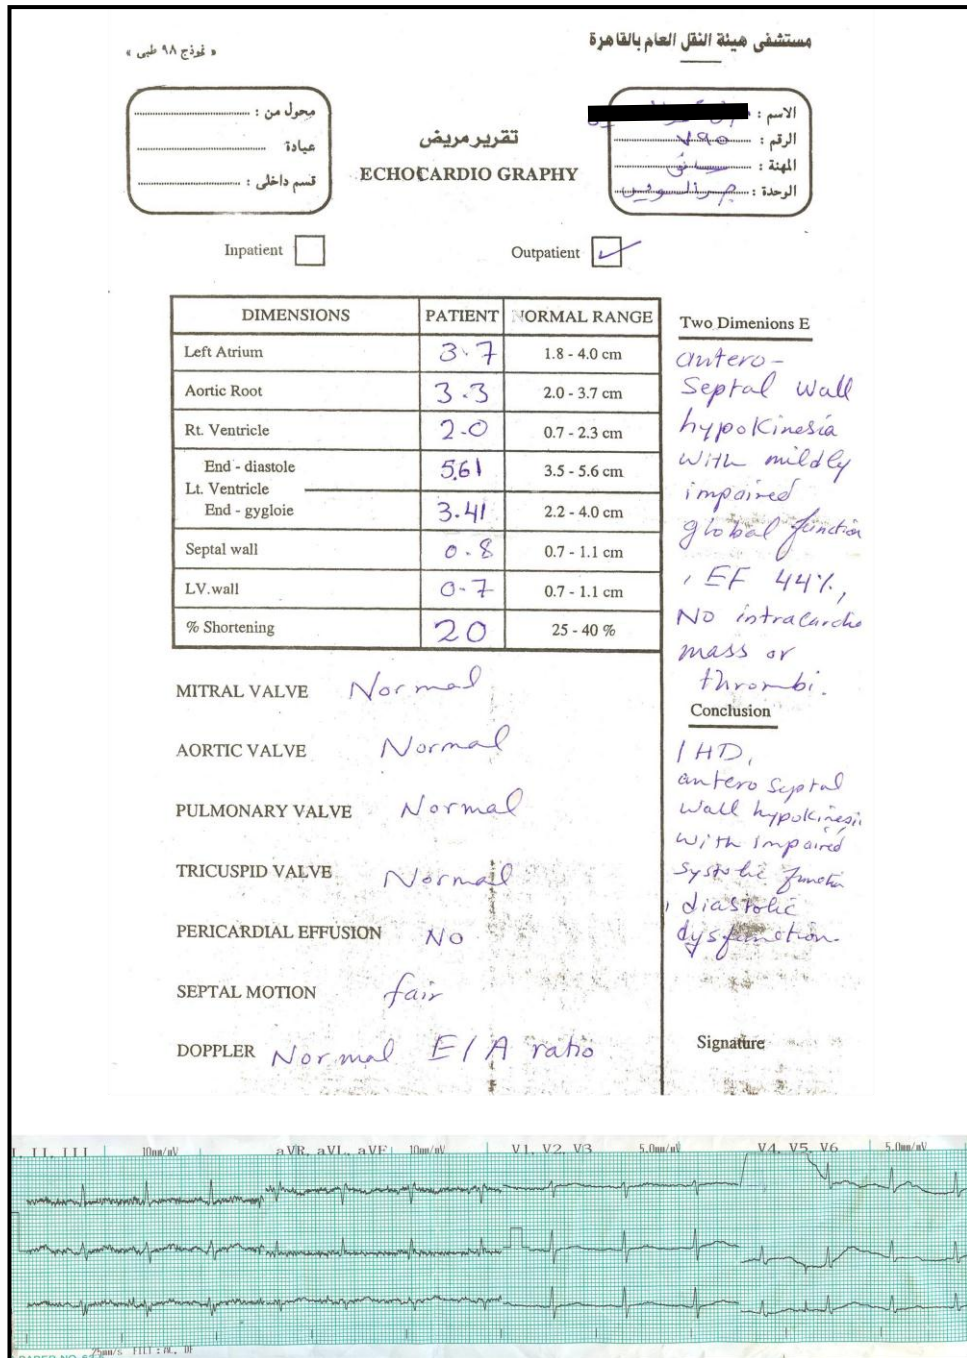 مستشفى هيئة النقل العام بالقاهرة
« نموذج ٩٨ طبى »
الاسم :
الرقم : ٧٩٥
المهنة : سائق
الوحدة : جسر السويس
تقرير مريض
ECHOCARDIO GRAPHY
محول من :
عيادة
قسم داخلى :
Inpatient
Outpatient ✓
DIMENSIONS PATIENT NORMAL RANGE
Left Atrium 3.7 1.8 - 4.0 cm
Aortic Root 3.3 2.0 - 3.7 cm
Rt. Ventricle 2.0 0.7 - 2.3 cm
End - diastole 5.61 3.5 - 5.6 cm
Lt. Ventricle
End - gygloie 3.41 2.2 - 4.0 cm
Septal wall 0.8 0.7 - 1.1 cm
LV.wall 0.7 0.7 - 1.1 cm
% Shortening 20 25 - 40 %
MITRAL VALVE Normal
AORTIC VALVE Normal
PULMONARY VALVE Normal
TRICUSPID VALVE Normal
PERICARDIAL EFFUSION No
SEPTAL MOTION fair
DOPPLER Normal E/A ratio
Two Dimenions E
antero-
Septal wall
hypokinesia
with mildly
impaired
global function
, EF 44%,
No intracardia
mass or
thrombi.
Conclusion
IHD,
antero septal
wall hypokinesia
with impaired
systolic function
, diastolic
dysfunction.
Signature
I, II, III 10mm/mV aVR, aVL, aVF 10mm/mV V1, V2, V3 5.0mm/mV V4, V5, V6 5.0mm/mV
25mm/s
PAPER NO.